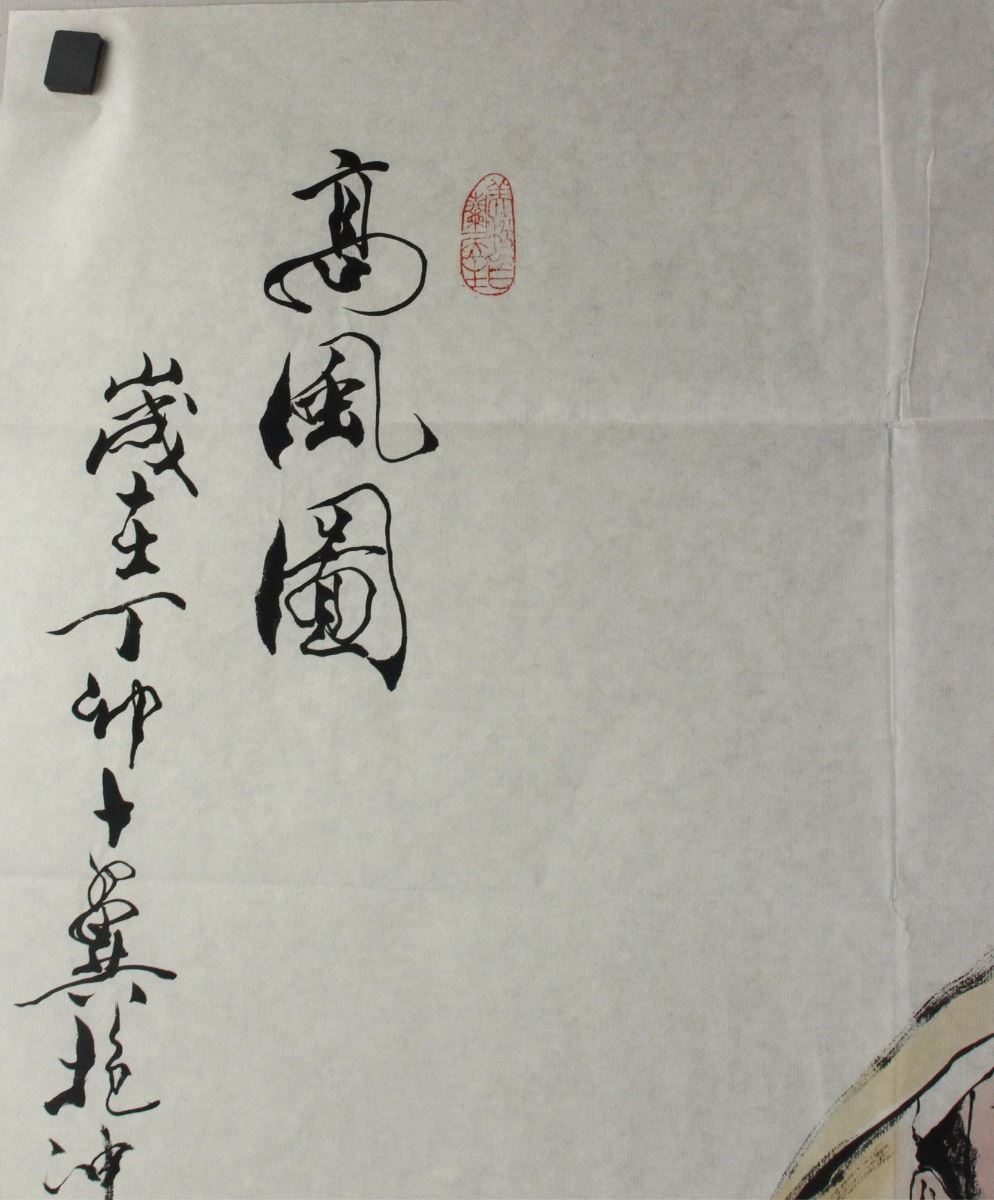 高風圖
歲在丁卯十翼抱冲